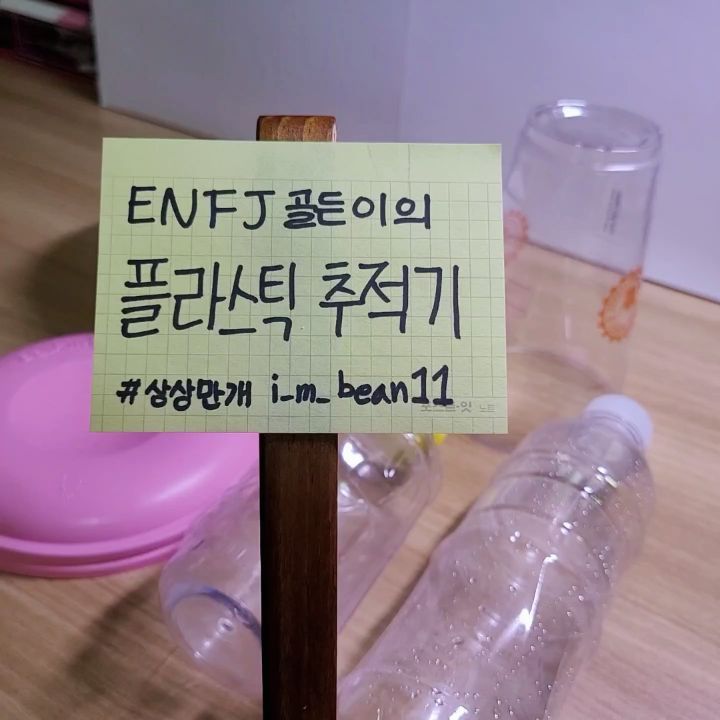 ENFJ 골든이의
플라스틱 추적기
#상상만개 i_m_bean11
포스트-잇 노트